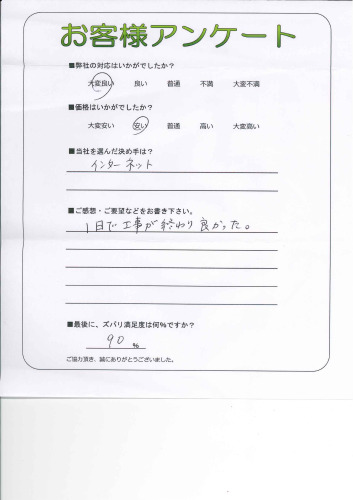 お客様アンケート
■弊社の対応はいかがでしたか？
大変良い 良い 普通 不満 大変不満
■価格はいかがでしたか？
大変安い 安い 普通 高い 大変高い
■当社を選んだ決め手は？
インターネット
■ご感想・ご要望などをお書き下さい。
1日で工事が終わり良かった。
■最後に、ズバリ満足度は何%ですか？
90 %
ご協力頂き、誠にありがとうございました。